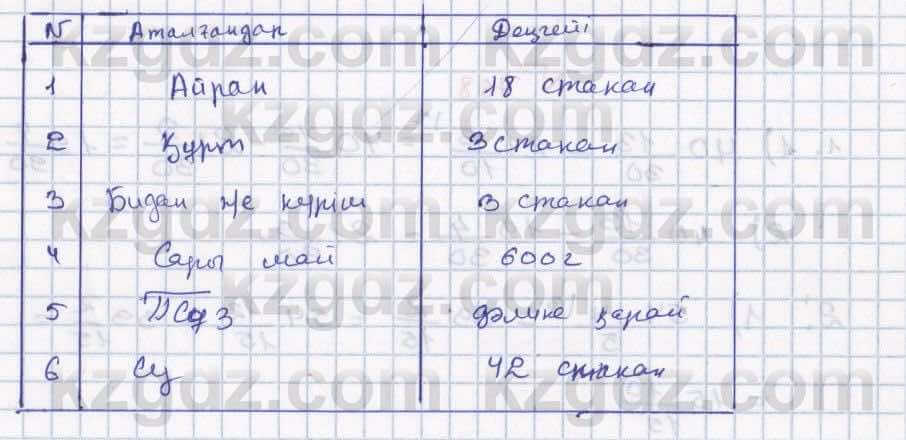 N Аталғандап Деңгейі
1 Айран 18 стакан
2 Құрт 3 стакан
3 Бидай не күріш 3 стакан
4 Сары май 600 г
5 Тұз дәміне қарай
6 Су 42 стакан
kzgdz.com